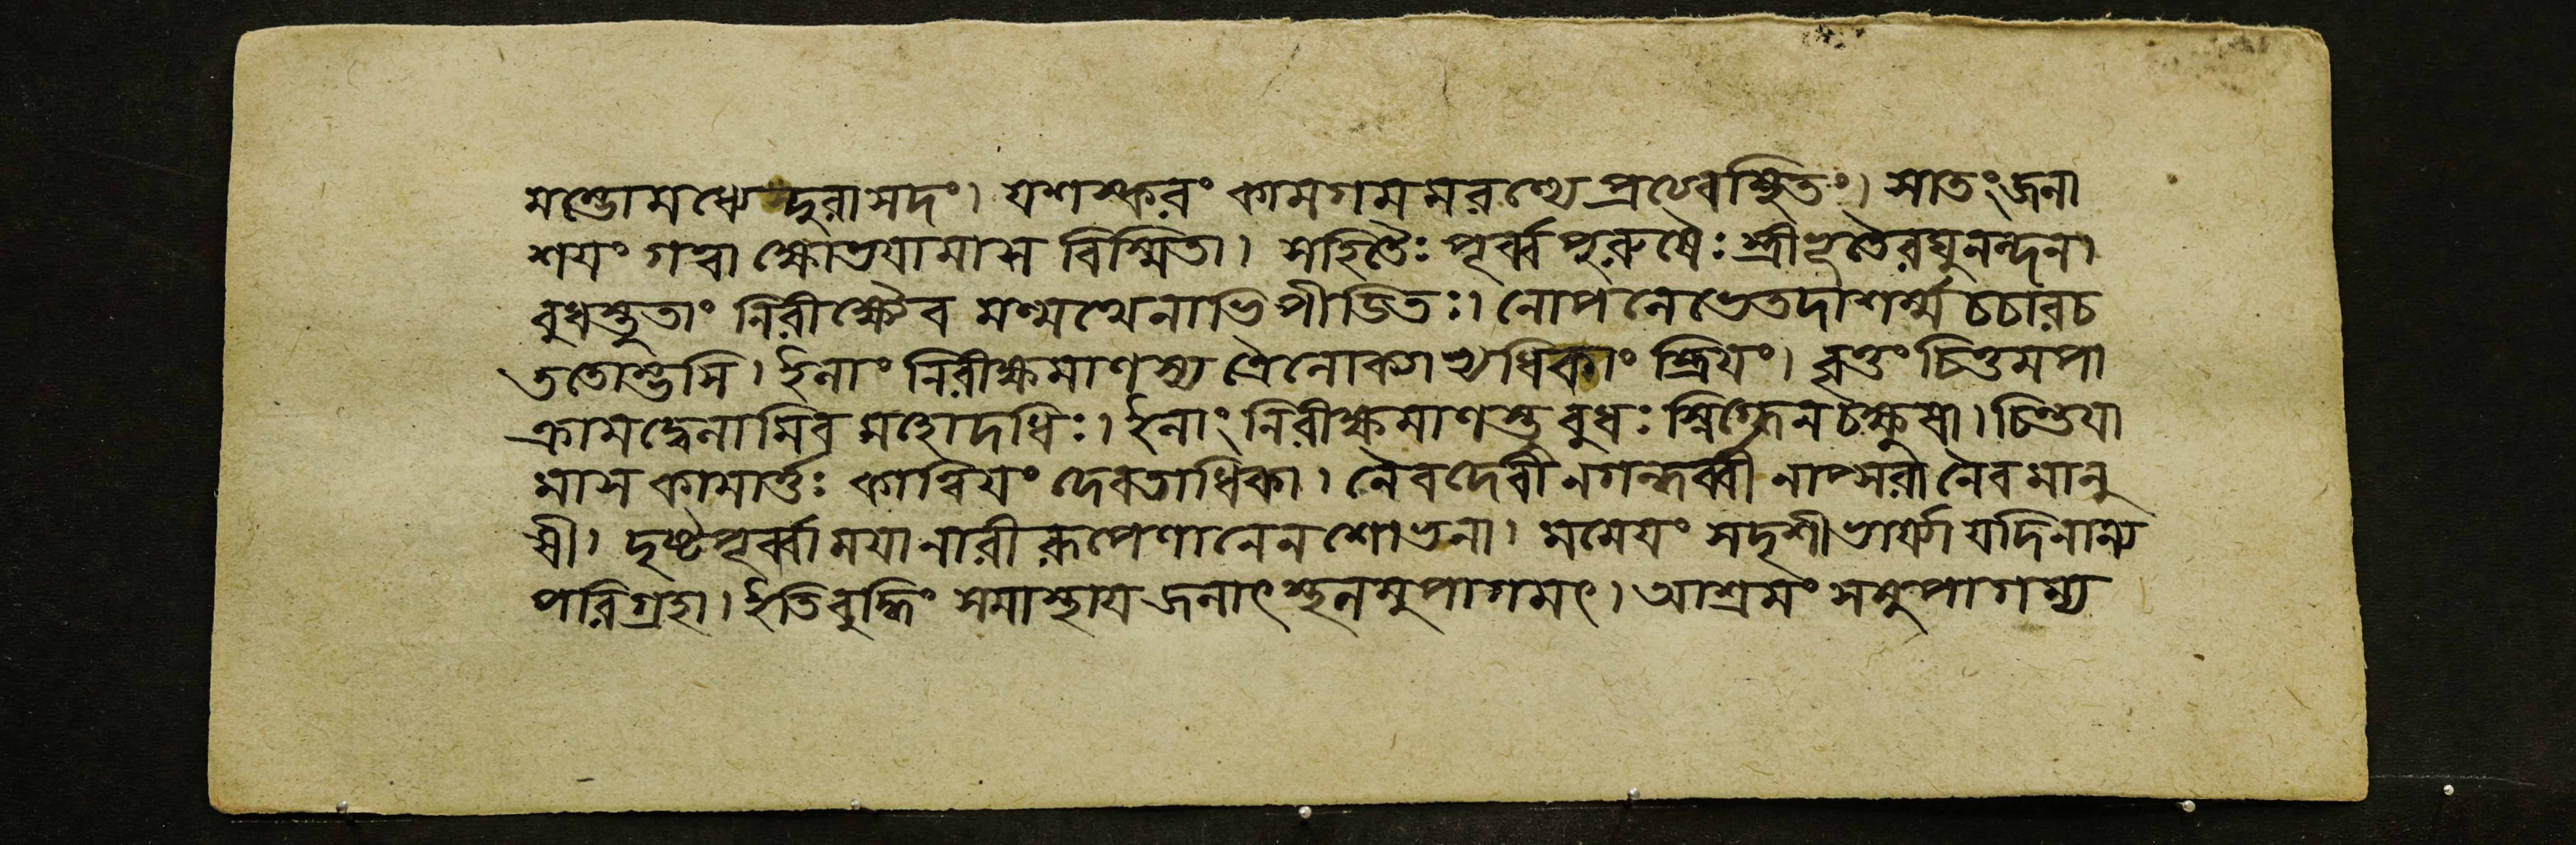 মম্ভোমধ্যে দুরাসদং। যশস্করং কামগমমরণ্যে প্রত্যেবস্থিতং। সাতংজলা
শয়ং গত্বা ক্ষোভয়ামাস বিস্মিতা। সহিতৈঃ পূর্ব্বপুরুষৈঃ স্ত্রীভূতৈরঘুনন্দন।
বুধস্তুতাং নিরীক্ষ্যৈব মন্মথেনাভিপীডিতঃ। নোপলেভেতদাশর্ম্ম চচারচ
ততোম্ভসি। ইলাং নিরীক্ষমাণস্য ত্রৈলোক্যাভ্যধিকাং স্ত্রিয়ং। বৃত্তং চিত্তমপা
ক্রামদ্বেলামিব মহোদধিঃ। ইলাং নিরীক্ষমাণস্তু বুধঃ স্নিগ্ধেন চক্ষুষা। চিন্তয়া
মাস কামার্ত্তঃ কান্বিয়ং দেবতাধিকা। নৈবদেবী নগন্ধর্ব্বী নাপ্সরা নৈব মানু
ষী। দৃষ্টপূর্ব্বা ময়া নারী রূপেণানেন শোভনা। মমেয়ং সদৃশী ভার্য্যা যদিনান্য
পরিগ্রহা। ইতিবুদ্ধিং সমাস্থায় জলাৎ স্থলমুপাগমৎ। আশ্রমং সমুপাগম্য